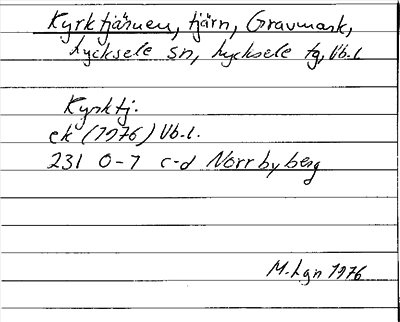 Kyrktjärnen, tjärn, Gravmark,
Lycksele sn, Lycksele tg, Vb. l.
Kyrktj.
ek (1976) Vb. l.
231 0-7 c-d Norrbyberg
M. Lgn 1976